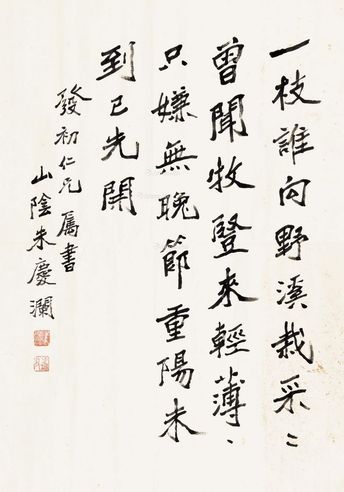 一枝誰向野溪栽采〻
曾聞牧豎來輕薄〻
只嫌無晚節重陽未
到已先開
發初仁兄屬書
山陰朱慶瀾